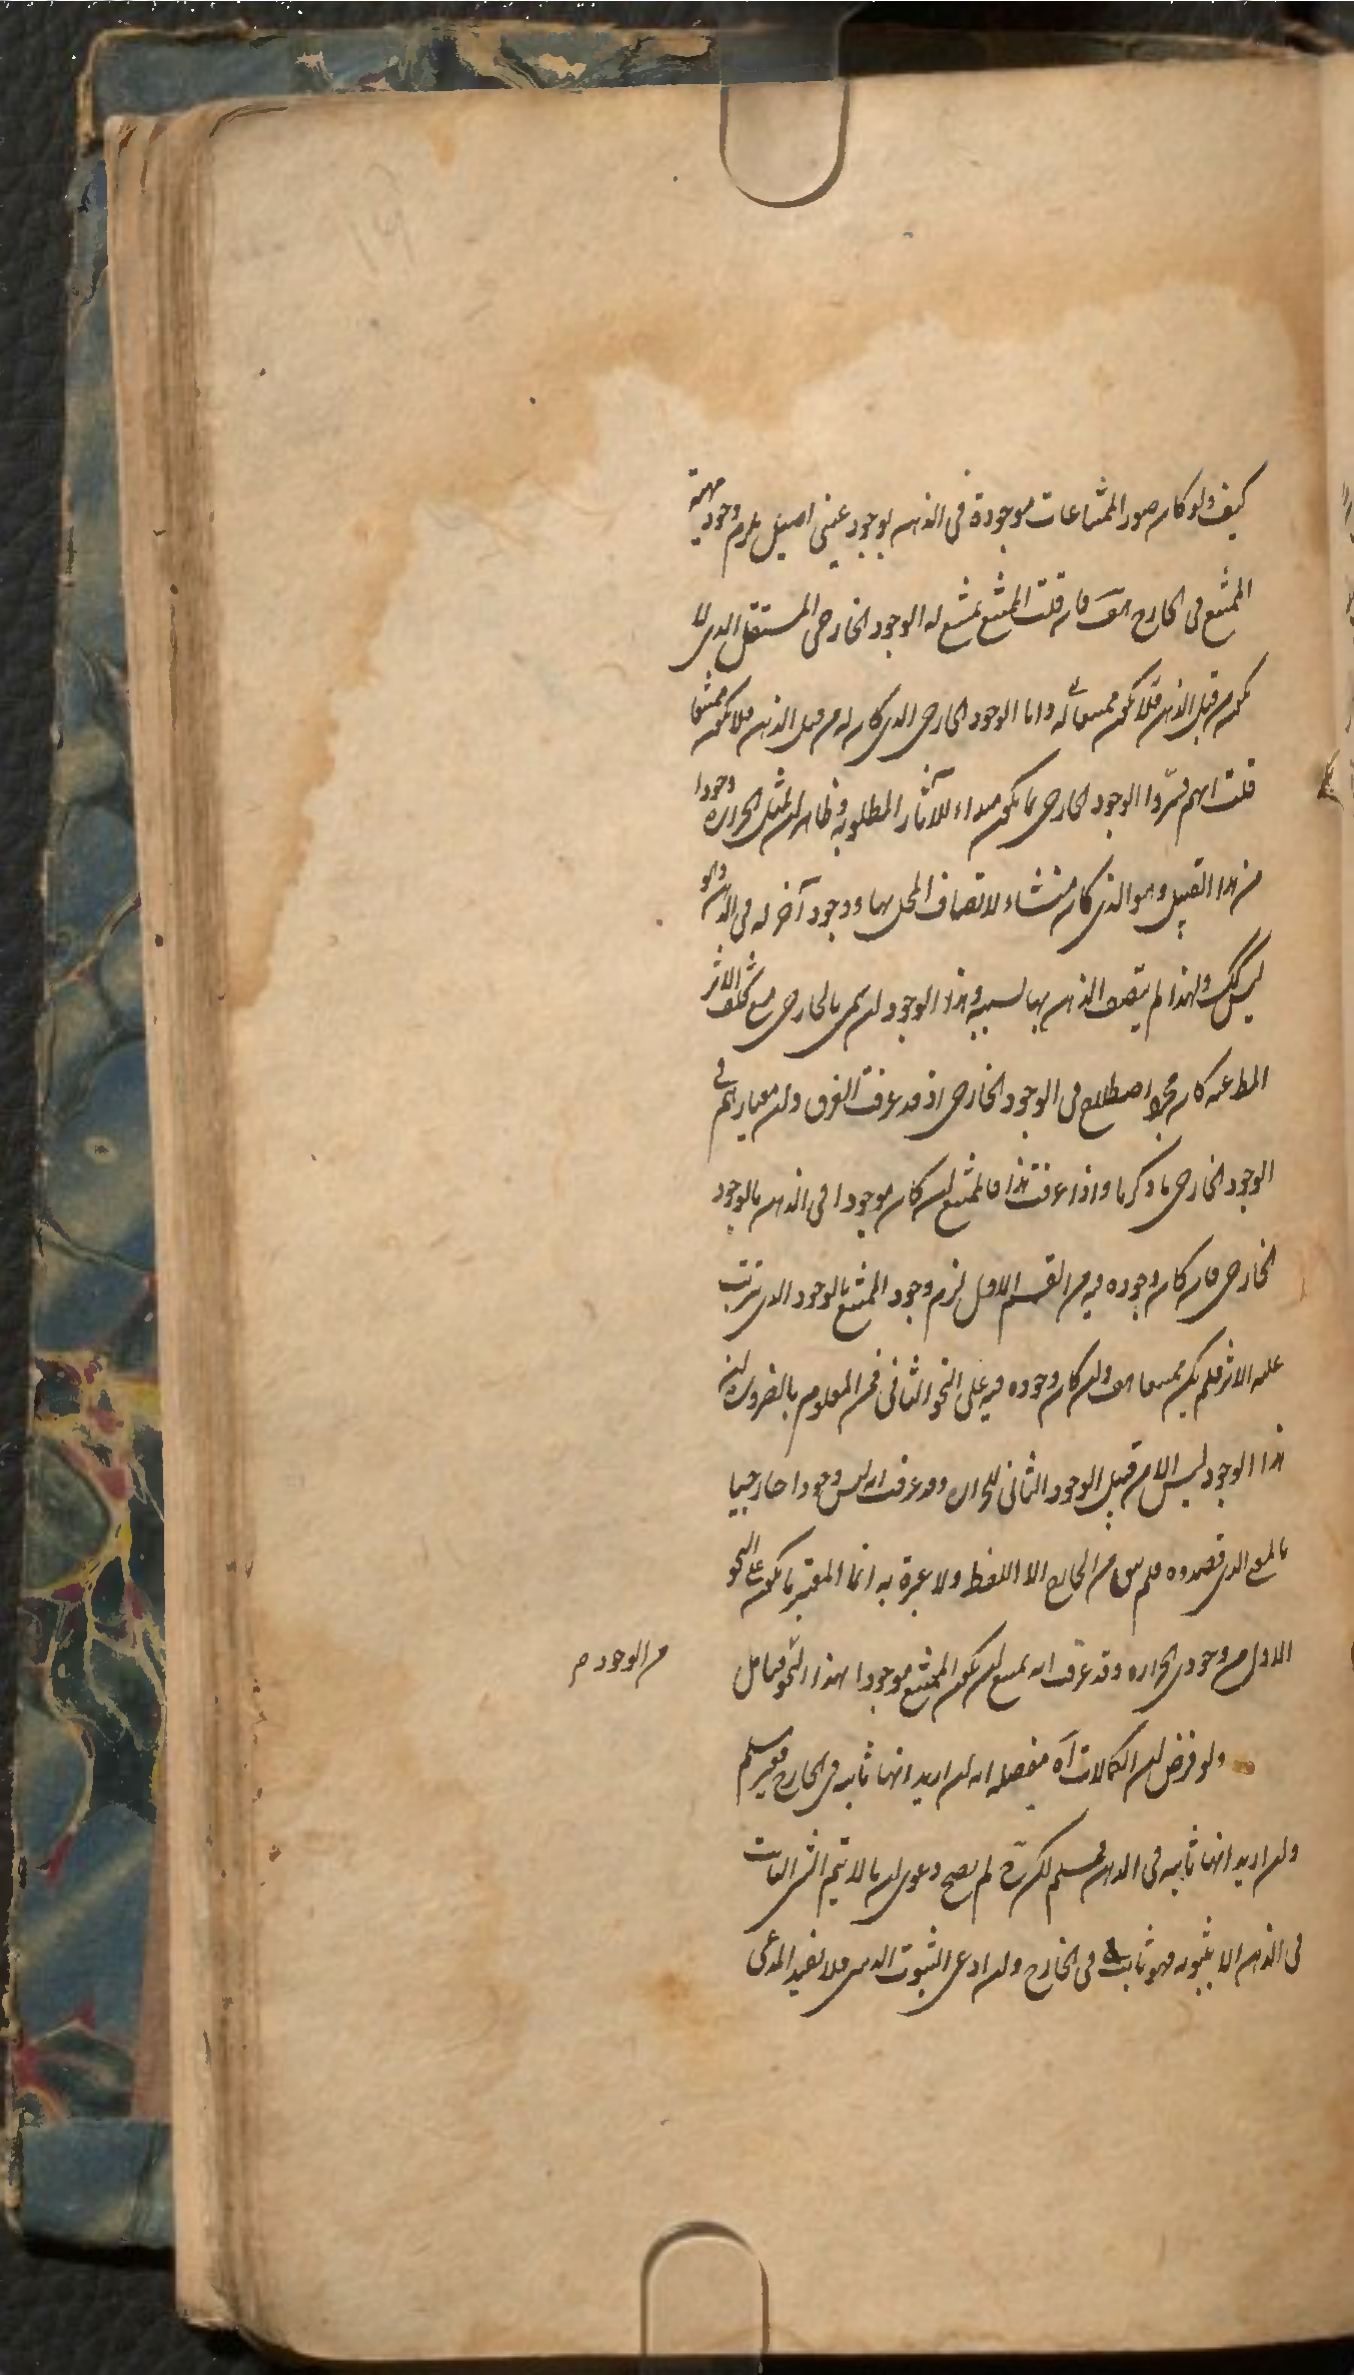 كيف ولو كان صور الممتنعات موجودة فى الذهن بوجود عينى اصيل يلزم وجود مهية
الممتنع فى الخارج هف فان قلت الممتنع يمتنع له الوجود الخارجى المستقل الذى لا
يكون من قبل الذهن فلا يكون ممتنعا له واما الوجود الخارجى الذى كان له من قبل الذهن فلا يكون ممتنعا
قلت انهم فسّروا الوجود الخارجى بما يكون مبداء للآثار المطلوبة وظاهر ان لمثل الحرارة وجودا
من هذا القبيل وهو الذى كان منشاء لاتصاف المحل بها ووجود آخر له فى الذهن وهو
ليس كك ولهذا لم يتصف الذهن بها بسببه وهذا الوجود لن سمى بالخارجى مع تخلف الاثر
المط عنه كان مجرد اصطلاح فى الوجود الخارجى اذ قد عرفت الفرق ولن معيارهم فى
الوجود الخارجى ما ذكرنا واذا عرفت هذا فالممتنع لن كان موجودا فى الذهن بالوجود
الخارجى فان كان وجوده فيه من القسم الاول لزم وجود الممتنع بالوجود الذى يترتب
عليه الاثر فلم يكن ممتنعا هف ولن كان وجوده فيه على النحو الثانى فمن المعلوم بالضرورة لن
هذا الوجود ليس الا من قبيل الوجود الثانى للحرارة وقد عرفت انه ليس وجودا خارجيا
بالمعنى الذى قصدوه فلم يبق من الخارج الا اللفظ ولا عبرة به انما المعتبر ما يكون على النحو
الاول من وجودى الحرارة وقد عرفت انه يمتنع لن يكون الممتنع موجودا بهذا النحو فتامل
من الوجود م
ولو فرض لن الكمالات آه تفصيله انه لن اريد انها ثابتة فى الخارج فغير مسلم
ولن اريد انها ثابتة فى الذهن فمسلم لكن ح لم يصح دعوى لن ما لا يتم اثبات
فى الذهن الا بثبوته فهو ثابت فى الخارج ولن ادعى الثبوت الذهنى فلا يفيد المدعى